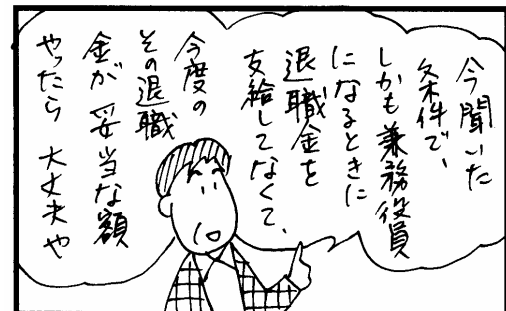 今聞いた
条件で、
しかも兼務役員
になるときに
退職金を
支給してなくて、
今度の
その退職
金が妥当な額
やったら大丈夫や